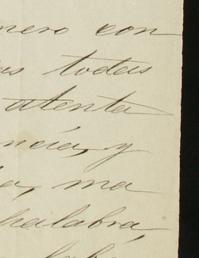 mero con
as todas
atenta
ncia, y
a, ma
palabra,